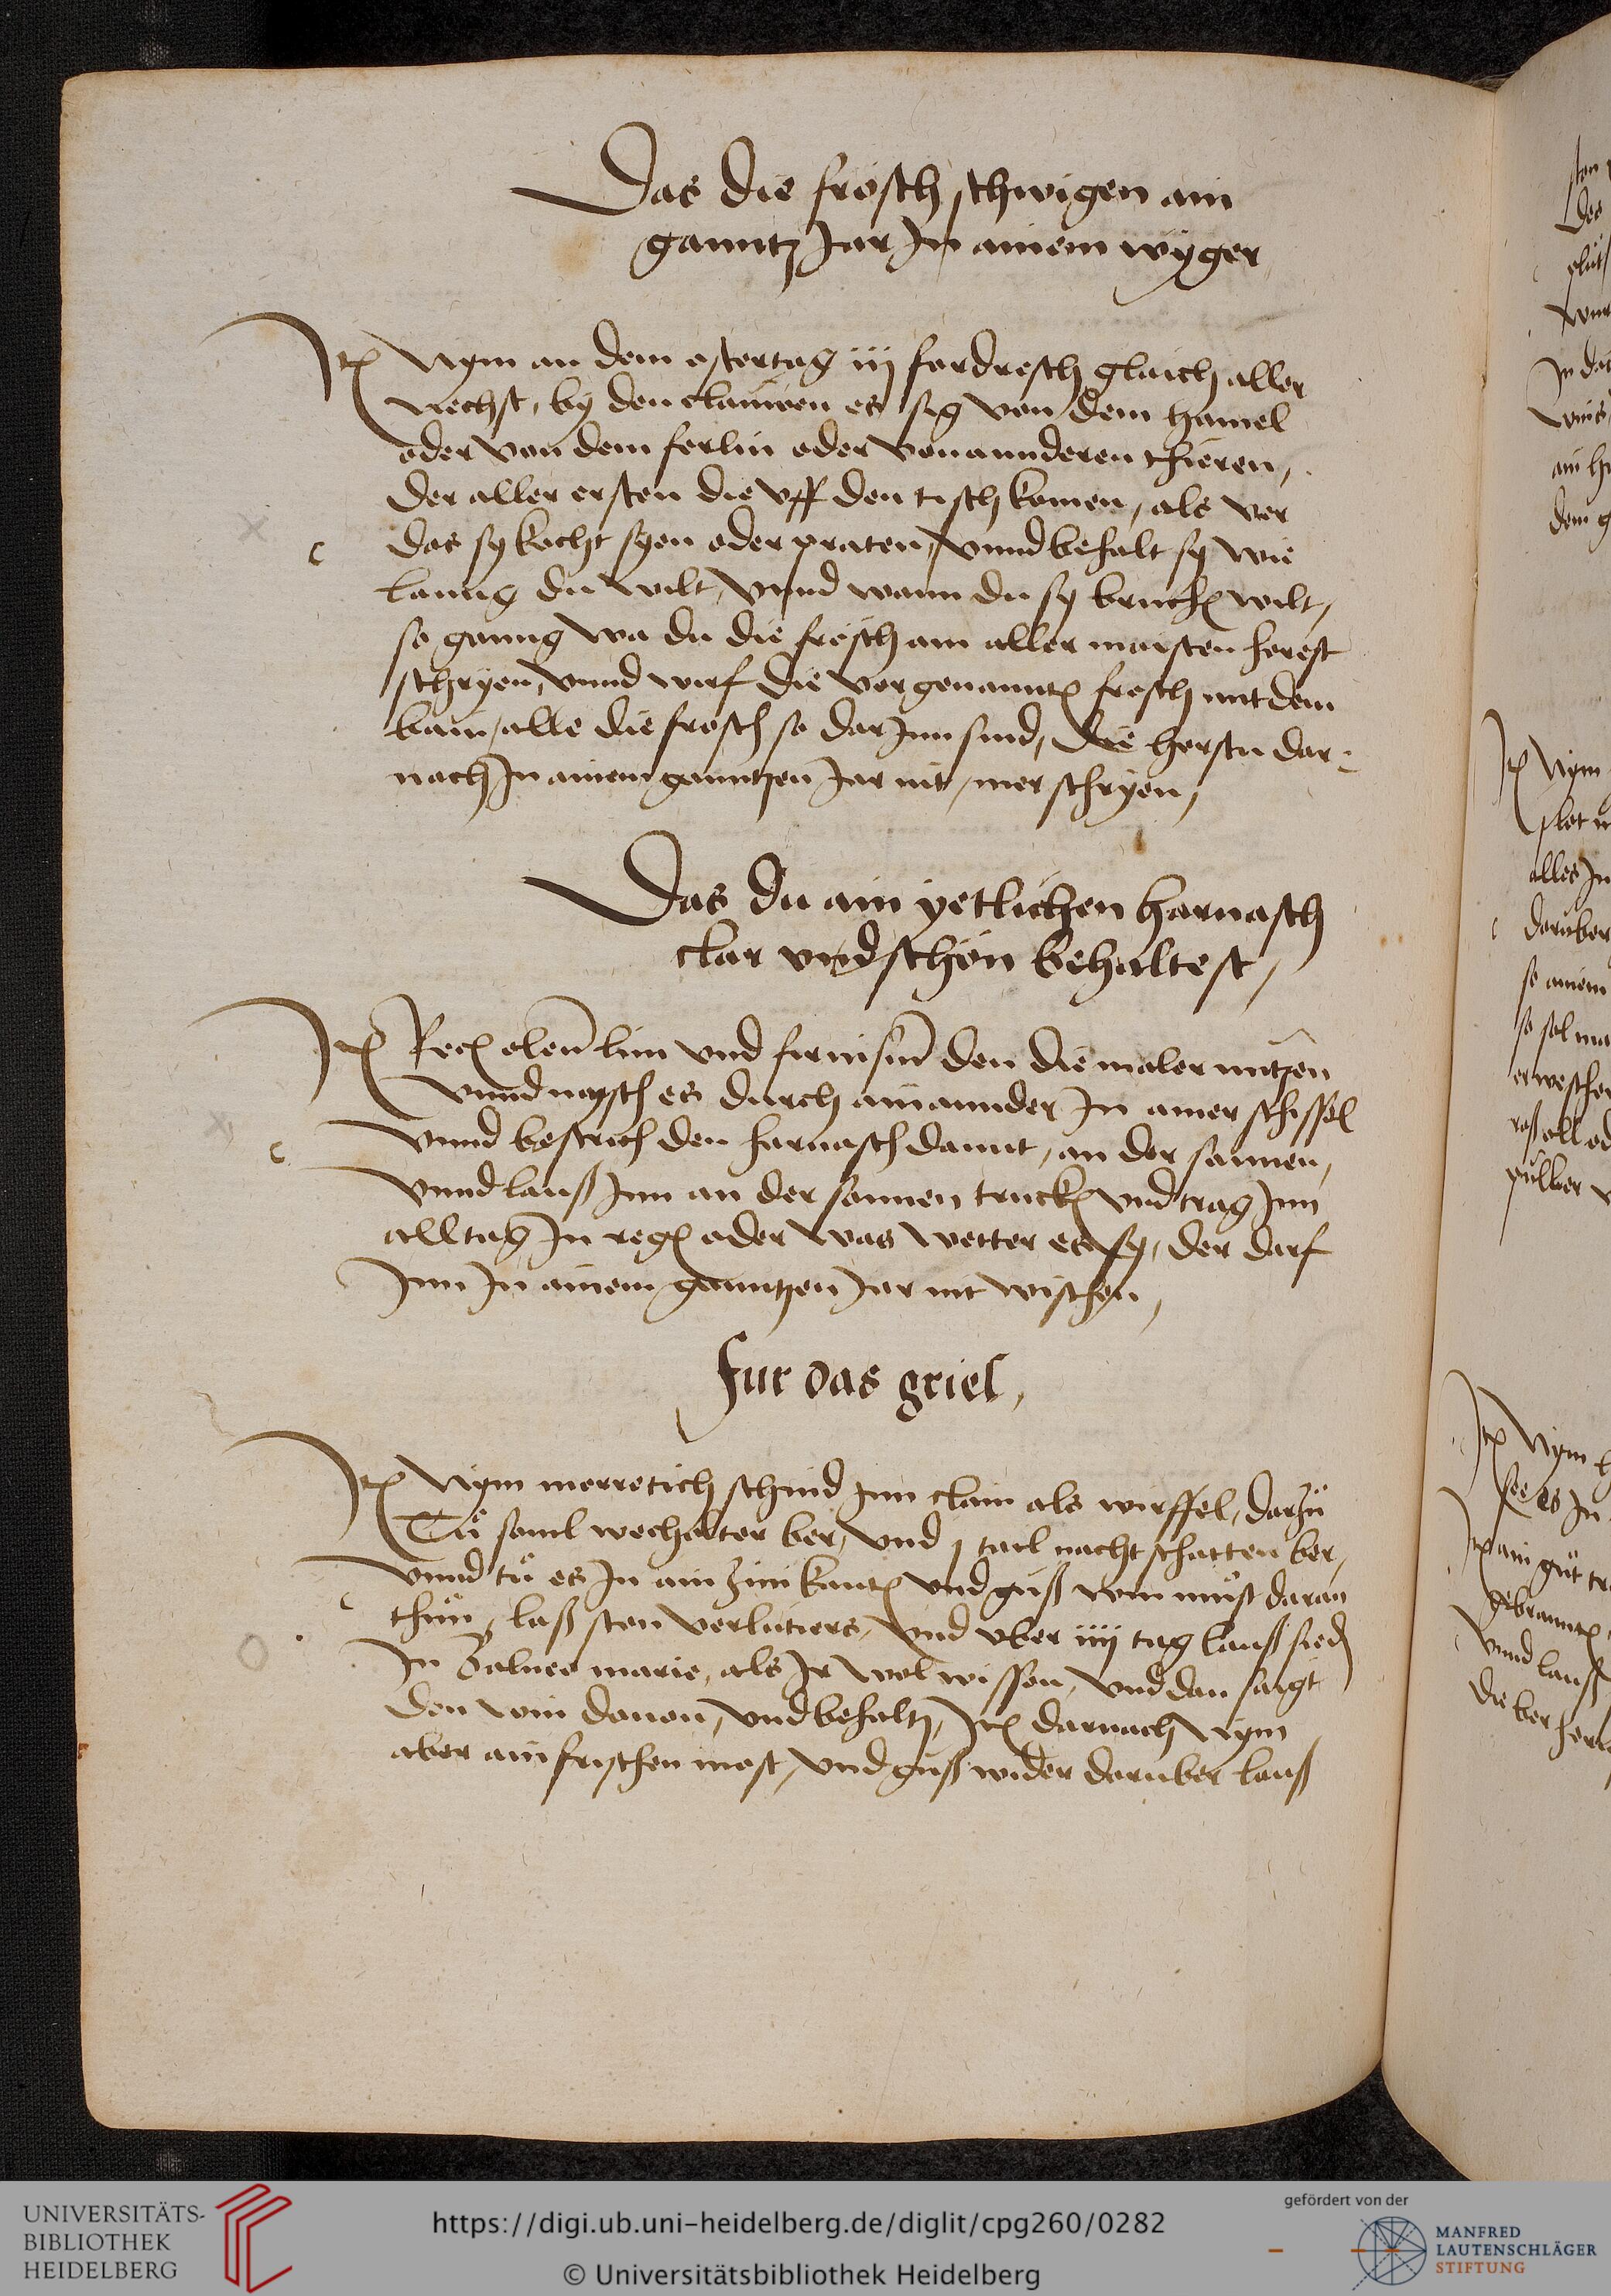 Das die frösch schwigen ain
ganntz Jar Jn ainem wyger
Jt Nym an dem ostertag iij fordresch glaich aller
nechst, by den clauwen es sig von dem hamel
oder von dem ferlin oder von annderen thieren,
der aller ersten die vff den tisch komen, als vor
das sy kocht syen oder praten, vnnd behalt sy wie
lanng du wilt, vnnd wann du sy bruch wilt,
so ganng wa du die frösch am aller maisten horest
schryen, vnnd wirf die vorgenannt frosch mit dem
bain, alle die frosch so dar Jnn sind, die horstu dar-
nach Jn ainem ganntzen Jar nit mer schryen,
Das du ain yetlichen harnasch
clar vnd schön behaltest,
Jt Rec oleu lini vnd firnisin den die maler nutzen
vnnd mysch es durch ainannder Jn ainer schissel
vnnd bestrich den harnasch damit, an der sonnen,
vnnd lauß Jnn an der sonnen truck vnd trag Jnn
all tag Jn reg oder was wetter es sy, der darf
Jnn Jn ainem ganntzen Jar nit wischen,
Fur das griel,
Jt Nym merretich schnid Jnn clain als wirffel, darzu
Tů souil wecholter ber, vnd j tail nachtschatten ber,
vnnd tů es Jn ain zini kant vnd guß vom most daran
thun, laß ston verlutiers, vnd vber iiij tag lauß sied
Jn Balneo marie, als Jr wol wissen, vnd dan saigt
den win dauon, vnd behaltz, Jt darnach Nym
aber ain frischen most, vnd guß wider daruber lauß
UNIVERSITÄTS-
BIBLIOTHEK
HEIDELBERG
https://digi.ub.uni-heidelberg.de/diglit/cpg260/0282
© Universitätsbibliothek Heidelberg
gefördert von der
MANFRED
LAUTENSCHLÄGER
STIFTUNG